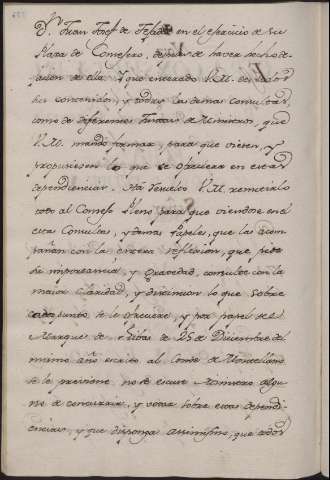 Dn. Juan Joseph de Texada en el exercicio de su
Plaza de Consejero, despues de haver hecho de-
jacion de ella. Y que enterado V.M. de todos
los contenidos, y todas las demas Consultas,
como de diferentes Juntas de Ministros, que
V.M. mandò formar, para que viesen, y
propusiesen lo que se ofreciera en estas
dependiencias. Ha resuelto V.M. remitirlo
todo al Consejo Pleno para que viendose en el
estas Consultas, y demas Papeles, que las acom-
pañan con la entera reflexion, que pide
su importancia, y Gravedad, consulte con la
maior claridad, y distincion lo que sobre
cada punto se le ofreciere, y por papel del
Marques de Ribas de 25 de Diciembre del
mismo año escrito al Conde de Montellano
se le previene no se escuse Ministro algu-
no de concurrir, y votar sobre estas dependi-
encias, y que disponga assimismo, que todos